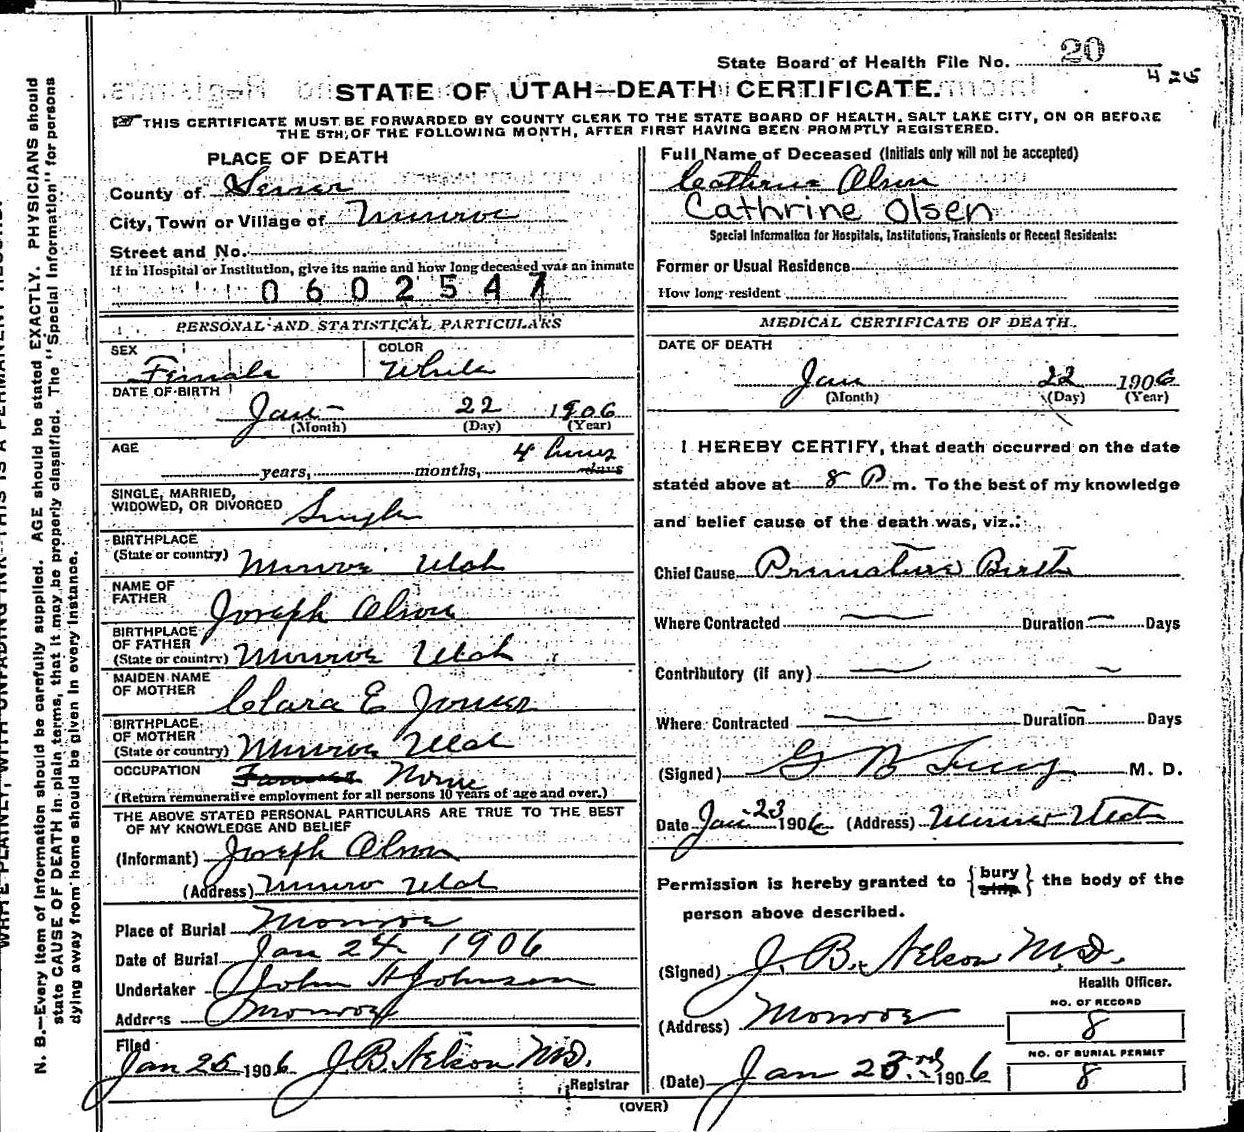 State Board of Health File No. 20
425
STATE OF UTAH—DEATH CERTIFICATE.
THIS CERTIFICATE MUST BE FORWARDED BY COUNTY CLERK TO THE STATE BOARD OF HEALTH, SALT LAKE CITY, ON OR BEFORE
THE 5TH OF THE FOLLOWING MONTH, AFTER FIRST HAVING BEEN PROMPTLY REGISTERED.
PLACE OF DEATH
County of Sevier
City, Town or Village of Monroe
Street and No.
If in Hospital or Institution, give its name and how long deceased was an inmate
0602547
PERSONAL AND STATISTICAL PARTICULARS
SEX Female
COLOR White
DATE OF BIRTH
Jan 22 1906
(Month) (Day) (Year)
AGE 4 hours
years, months, days
SINGLE, MARRIED,
WIDOWED, OR DIVORCED Single
BIRTHPLACE
(State or country) Monroe Utah
NAME OF
FATHER Joseph Olson
BIRTHPLACE
OF FATHER
(State or country) Monroe Utah
MAIDEN NAME
OF MOTHER Clara E Jones
BIRTHPLACE
OF MOTHER
(State or country) Monroe Utah
OCCUPATION None
(Return remunerative employment for all persons 10 years of age and over.)
THE ABOVE STATED PERSONAL PARTICULARS ARE TRUE TO THE BEST
OF MY KNOWLEDGE AND BELIEF
(Informant) Joseph Olson
(Address) Monroe Utah
Place of Burial Monroe
Date of Burial Jan 24 1906
Undertaker John H Johnson
Address Monroe
Filed
Jan 26 1906 J.B. Nelson M.D.
Registrar
Full Name of Deceased (Initials only will not be accepted)
Cathrine Olson
Cathrine Olsen
Special Information for Hospitals, Institutions, Transients or Recent Residents:
Former or Usual Residence
How long resident
MEDICAL CERTIFICATE OF DEATH.
DATE OF DEATH
Jan 22 1906
(Month) (Day) (Year)
I HEREBY CERTIFY, that death occurred on the date
stated above at 8 P. m. To the best of my knowledge
and belief cause of the death was, viz.:
Chief Cause Premature Birth
Where Contracted — Duration — Days
Contributory (if any) —
Where Contracted — Duration Days
(Signed) G B M. D.
Date Jan 23 1906 (Address) Monroe Utah
Permission is hereby granted to { bury ship } the body of the
person above described.
(Signed) J. B. Nelson M.D.
Health Officer.
(Address) Monroe
NO. OF RECORD
8
NO. OF BURIAL PERMIT
8
(Date) Jan 23rd 1906
(OVER)
N. B.—Every item of information should be carefully supplied. AGE should be stated EXACTLY. PHYSICIANS should
state CAUSE OF DEATH in plain terms, that it may be properly classified. The "Special Information" for persons
dying away from home should be given in every instance.